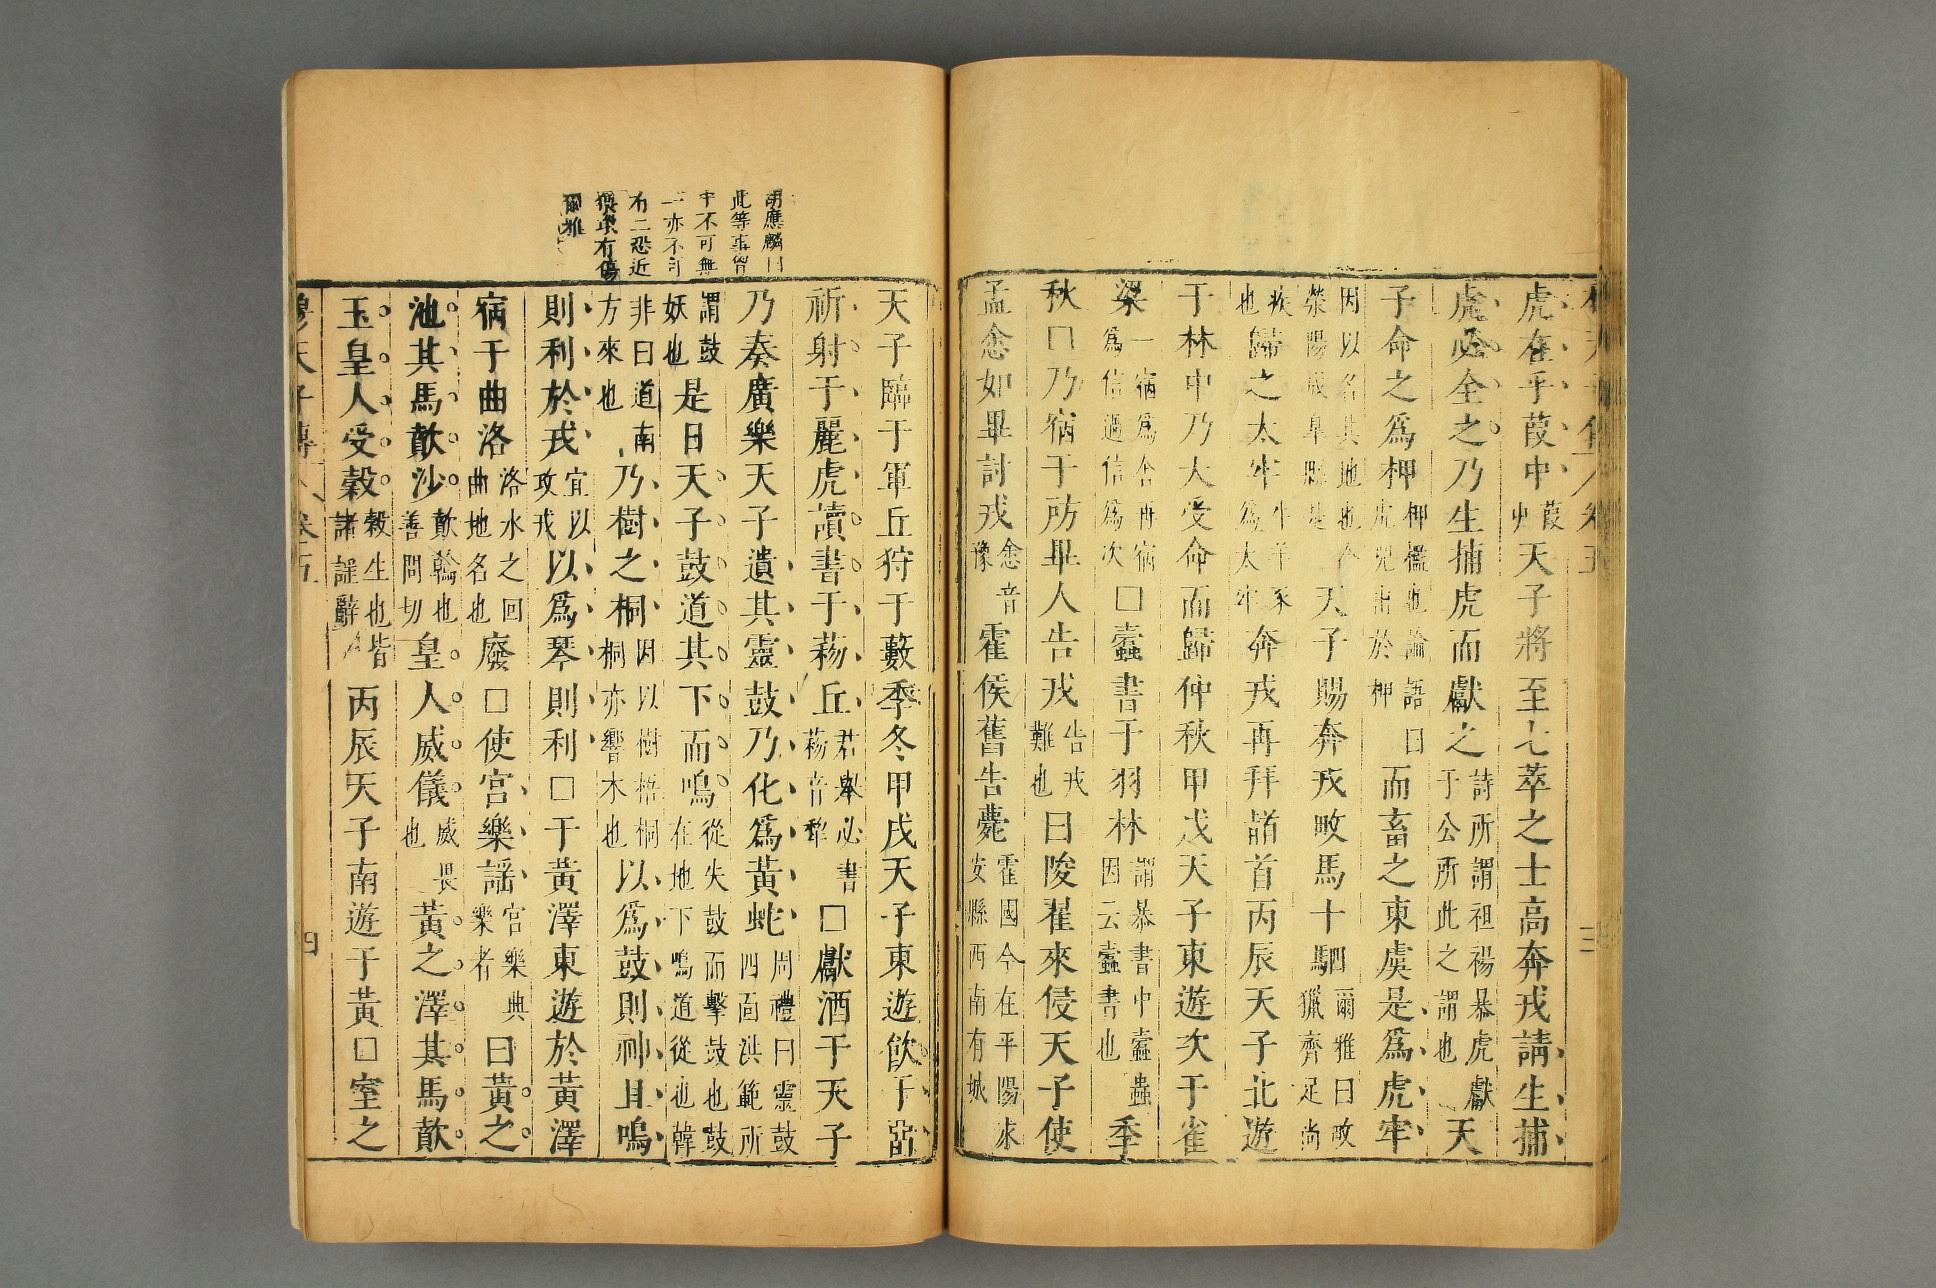 穆天子傳 卷五 三
虎在乎葭中葭艸天子將至七萃之士高奔戎請生捕
虎必全之乃生捕虎而獻之詩所謂袒裼暴虎獻于公所此之謂也天
子命之爲柙柙檻也論語曰虎兕出於柙而畜之東虞是爲虎牢
因以名其地也今滎陽成皋縣是天子賜奔戎畋馬十駟爾雅曰畋獵齊足尚
疾也歸之太牢牛羊豕爲太牢奔戎再拜䭫首丙辰天子北遊
于林中乃大受命而歸仲秋甲戌天子東遊次于雀
梁一宿爲舍再宿爲信過信爲次□蠹書于羽林謂暴書中蠹蟲因云蠹書也季
秋□乃宿于祊畢人告戎告戎難也曰陖翟來侵天子使
孟悆如畢討戎悆音豫霍侯舊告薨霍國今在平陽永安縣西南有城
胡應麟曰
此等事
不可無
一亦不可
有二恐近
有傷
爾雅
天子臨于軍丘狩于藪季冬甲戌天子東遊飲于
祈射于麗虎讀書于䔣丘君舉必書䔣音犂□獻酒于天子
乃奏廣樂天子遺其靈鼓乃化爲黃蛇周禮曰靈鼓四面洪範所
謂鼓妖也是日天子鼓道其下而鳴從失鼓而擊鼓也鼓在地下鳴道從也韓
非曰道南方來也乃樹之桐因以樹梧桐桐亦響木也以爲鼓則神且鳴
則利於戎宜以攻戎以爲琴則利□于黃澤東遊於黃澤
宿于曲洛洛水之回曲地名也廢□使宮樂謠宮樂典樂者曰黃之
池其馬歕沙歕翰也善問切皇人威儀威畏也黃之澤其馬歕
玉皇人受穀穀生也皆諸謠辭丙辰天子南遊于黃□室之
穆天子傳 卷五 四